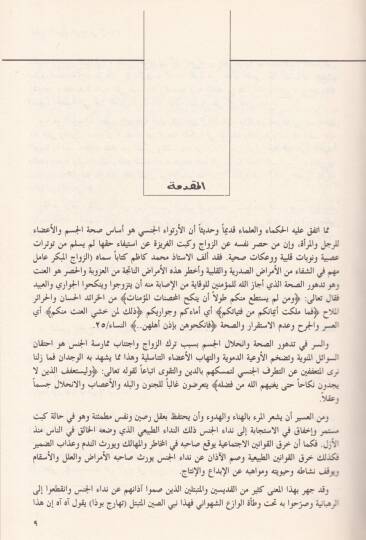 المقدمة
مما اتفق عليه الحكماء والعلماء قديماً وحديثاً أن الأرتواء الجنسي هو أساس صحة الجسم والأعضاء
للرجل والمرأة، وإن من حصر نفسه عن الزواج وكبت الغريزة عن استيفاء حقها لم يسلم من توترات
عصبية ونوبات قلبية ووعكات صحية. فقد ألف الاستاذ محمد كاظم كتاباً سماه (الزواج المبكر عامل
مهم في الشفاء من الأمراض الصدرية والقلبية وأخطر هذه الأمراض الناتجة من العزوبة والحصر هو العنت
وهو تدهور الصحة الذي أجاز الله للمؤمنين للوقاية من الإصابة منه أن يتزوجوا وينكحوا الجواري والعبيد
فقال تعالى: ﴿ومن لم يستطع منكم طولاً أن ينكح المحصنات المؤمنات﴾ من الخرائد الحسان والحرائر
الملاح ﴿فما ملكت أيمانكم من فتياتكم﴾ أي أماءكم وجواريكم ﴿ذلك لمن خشي العنت منكم﴾ أي
العسر والجرح وعدم الاستقرار والصحة ﴿فانكحوهن بإذن أهلهن..﴾ النساء/٢٥.
والسر في تدهور الصحة وانحلال الجسم بسبب ترك الزواج واجتناب ممارسة الجنس هو احتقان
السوائل المنوية وتضخم الأوعية الدموية والتهاب الأعضاء التناسلية وهذا مما يشهد به الوجدان فما زلنا
نرى المتعففين عن التطرف الجنسي لتمسكهم بالدين والتقوى اتباعاً لقوله تعالى: ﴿وليستعفف الذين لا
يجدون نكاحاً حتى يغنيهم الله من فضله﴾ يتعرضون غالباً للجنون والبله والأعصاب والانحلال جسماً
وعقلاً.
ومن العسير أن يشعر المرء بالهناء والهدوء وأن يحتفظ بعقل رصين ونفس مطمئنة وهو في حالة كبت
مستمر وإخفاق في الاستجابة إلى نداء الجنس ذلك النداء الطبيعي الذي وضعه الخالق في الناس منذ
الأزل. فكما أن خرق القوانين الاجتماعية يوقع صاحبه في المخاطر والمهالك ويورث الندم وعذاب الضمير
فكذلك خرق القوانين الطبيعية وصم الآذان عن نداء الجنس يورث صاحبه الأمراض والعلل والأسقام
ويوقف نشاطه وحيويته ومواهبه عن الإبداع والإنتاج.
وقد جهر بهذا المعنى كثير من القديسين والمتبتلين الذين صموا آذانهم عن نداء الجنس وانقطعوا إلى
الرهبانية وصرّحوا به تحت وطأة الوازع الشهواني فهذا نبي الصين المتبتل (تهارج بوذا) يقول آه آه إن هذا
٩